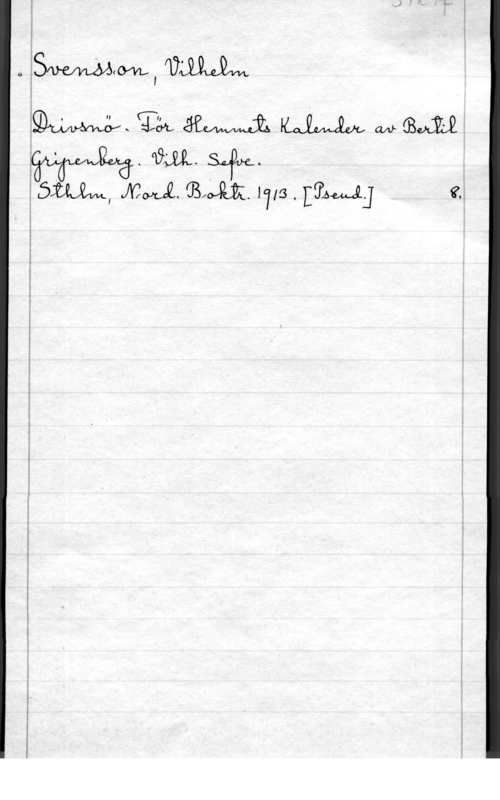 Svensson, Vilhelm
Drivsnö. För Hemmets Kalender av Bertil
Gripenberg. Vilh. Sefve.
Sthlm, Nord. Boktr. 1913. [Pseud.] 8.